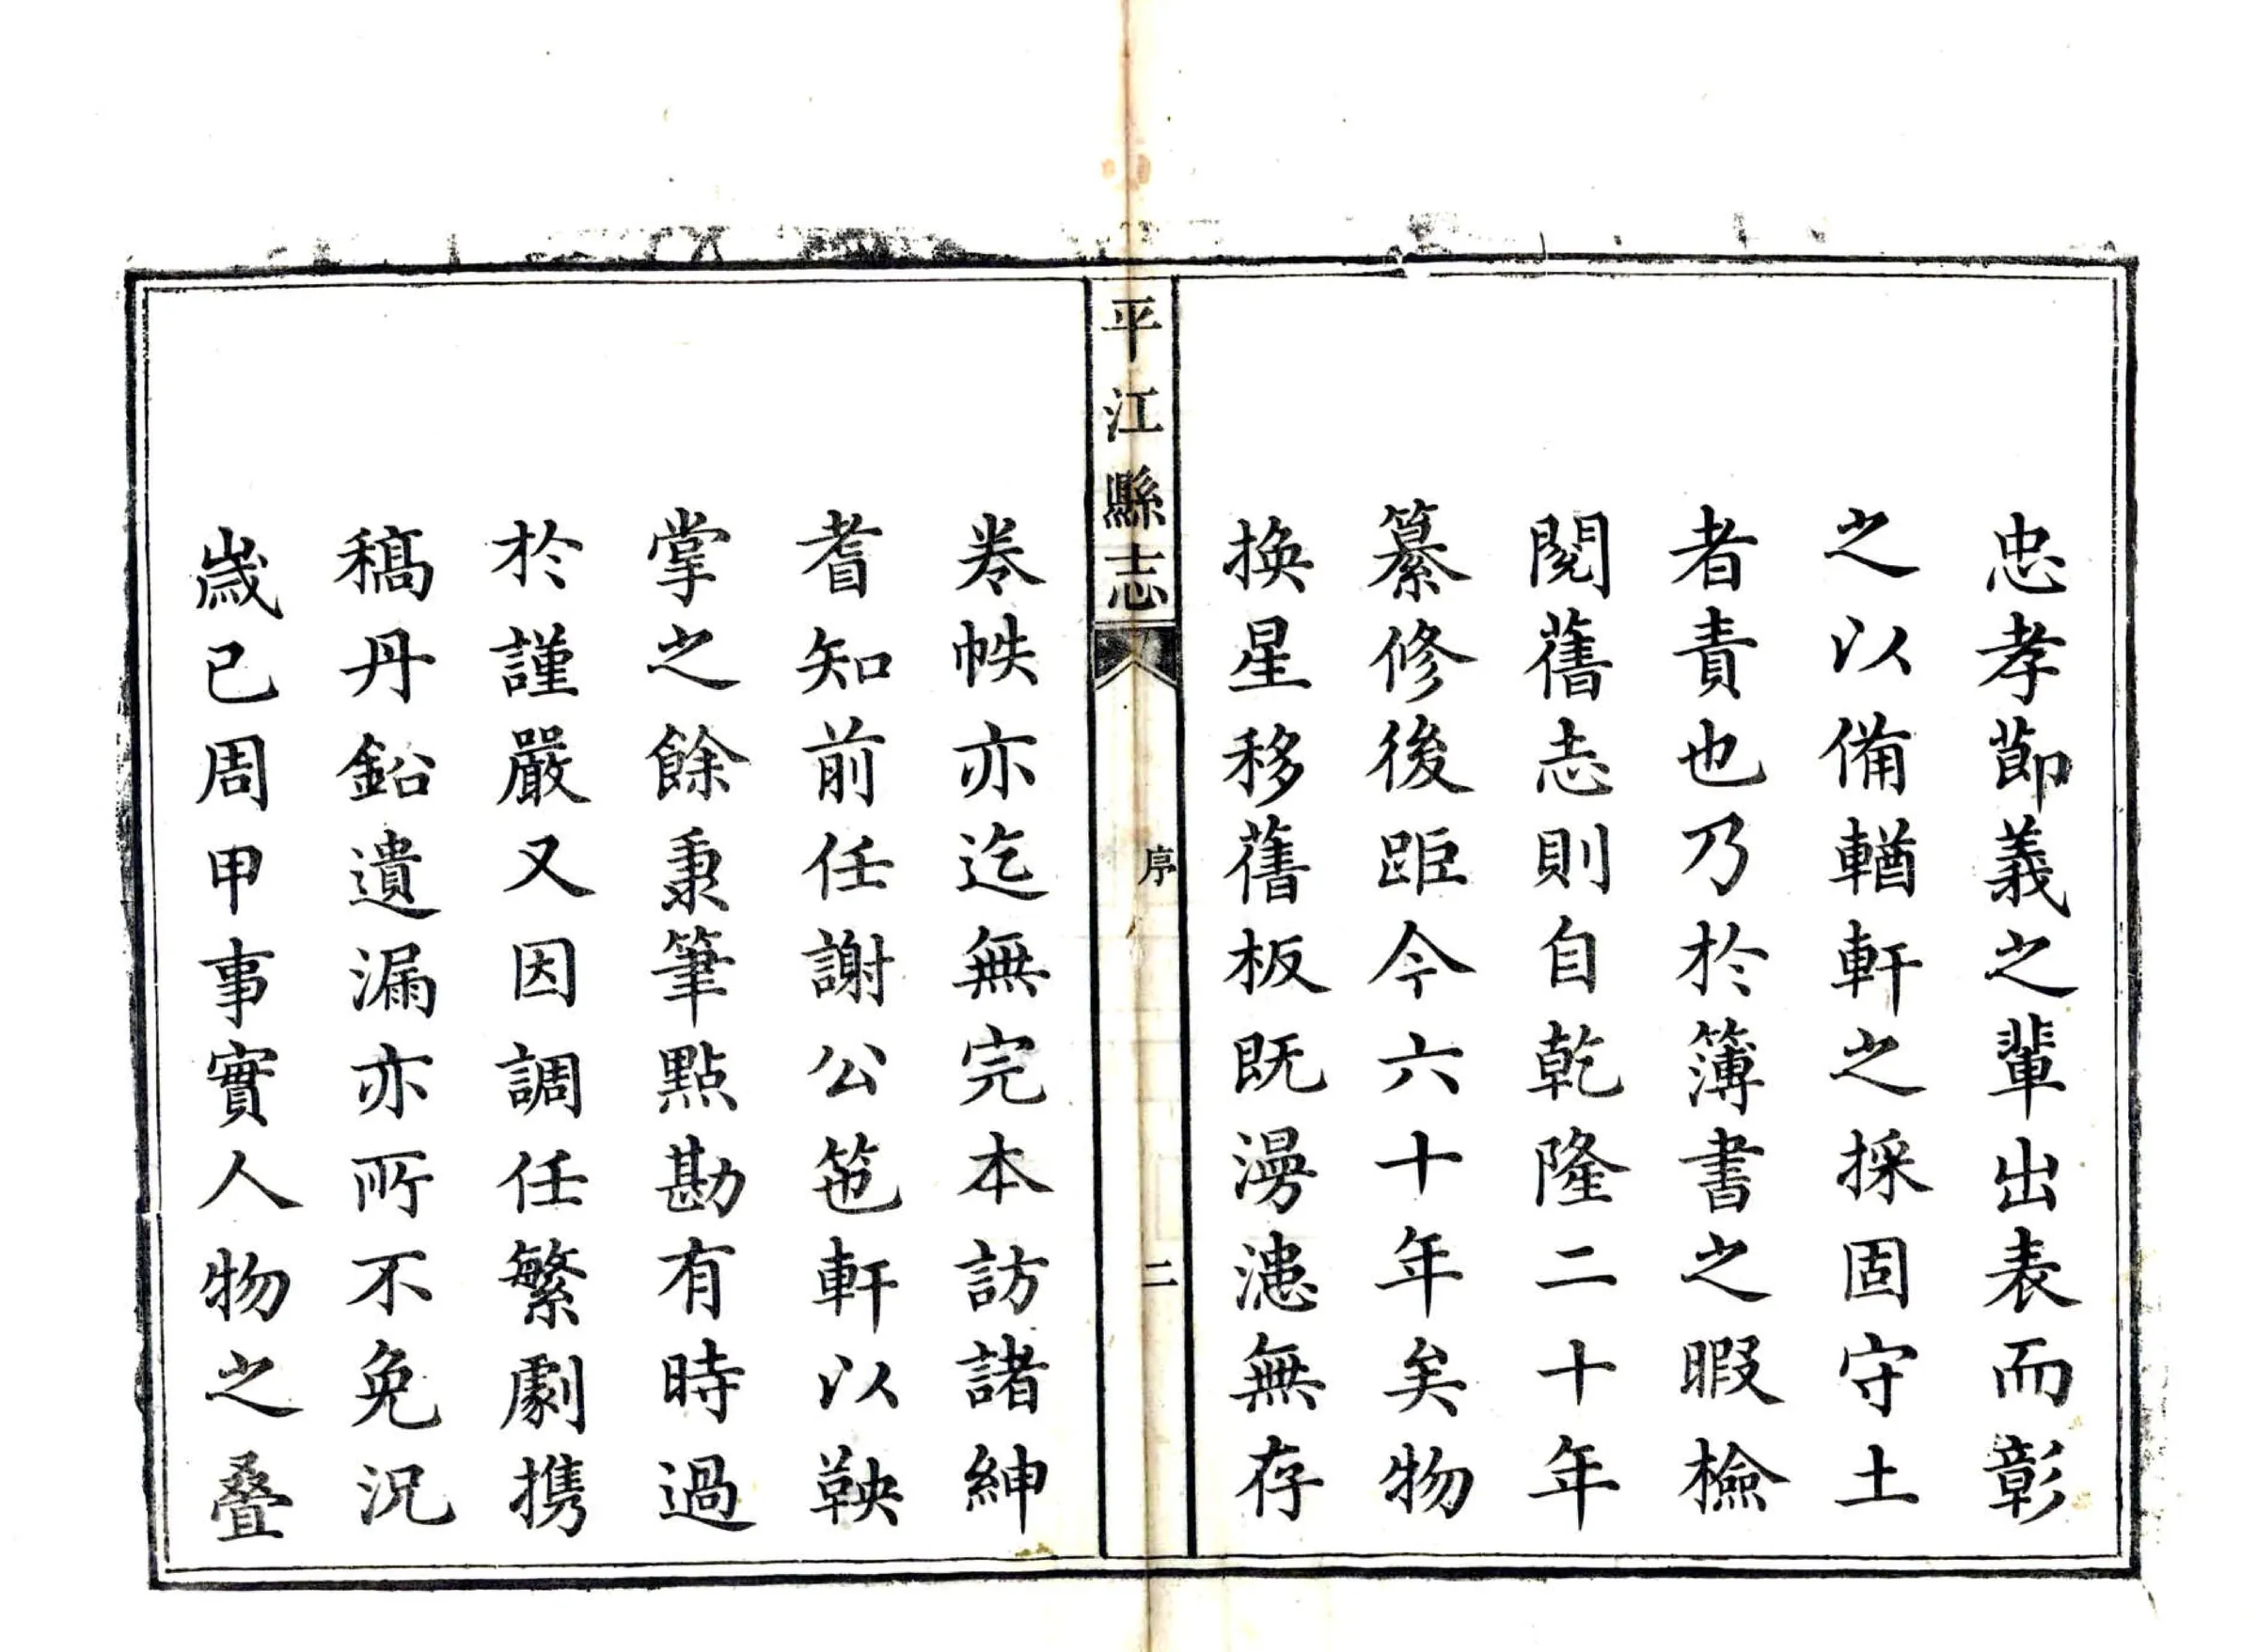 忠孝節義之輩出表而彰
之以備輶軒之採固守土
者責也乃於簿書之暇檢
閱舊志則自乾隆二十年
纂修後距今六十年矣物
換星移舊板既漫漶無存
平江縣志
序
二
卷帙亦迄無完本訪諸紳
耆知前任謝公笆軒以鞅
掌之餘秉筆點勘有時過
於謹嚴又因調任繁劇携
稿丹鉛遺漏亦所不免況
歲已周甲事實人物之疊